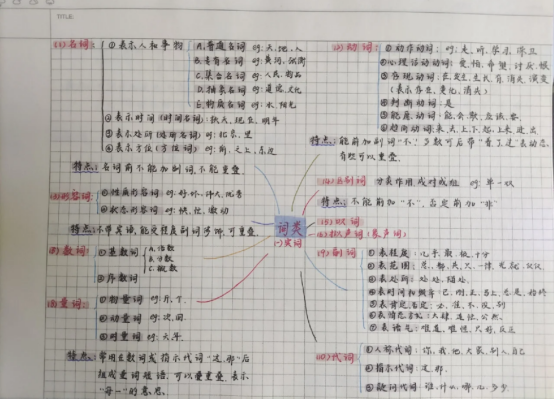 TITLE:
(1)名词:
①表示人和事物
A.普通名词 如:天、地、人
B.专有名词 如:黄河、
C.集合名词 如:人民、
D.抽象名词 如:道德、文化
E.物质名词 如:水、阳光
②表示时间(时间名词):秋天、现在、明年
③表示处所(处所名词) 如:北京、里
④表示方位(方位词) 如:前、之上、东边
特点:名词前不能加副词,不能重叠。
(2)动词:
①动作动词: 如:走、听、学习
②心理活动动词:爱、怕、希望、讨厌、恨
③存现动词:在、存在、生长、有、消失、演变
(表示存在、变化、消失)
④判断动词:是
⑤能愿动词:能、会、敢、应该
⑥趋向动词:来、去、上、下、起、上来、进、出
特点:能前加副词"不";多数可后带"着了过"表动态,
有些可以重叠。
(3)形容词:
①性质形容词 如:好、坏、伟大
②状态形容词 如:快、忙、激动
特点:不带宾语,能受程度副词修饰,可重叠。
区别词 分类作用,成对成组 如:单一双
特点:不能前加"不",否定前加"非"
叹词
拟声词(象声词)
数词:
①基数词
A.倍数
B.分数
C.概数
②序数词
词类
(一)实词
副词
①表程度:几乎、最、极、十分
②表范围:
③表处所:处处、随处、
④表时间和频率:已、刚、先、马上、总是、始终
⑤表肯定否定:必、准、不、没、别
⑥表情态方式:大肆、连忙、公然、
⑦表语气:难道、难怪、只好、反正
量词:
①物量词 如:斤、丁
②动量词 如:次、回
③时量词 如:天、年
特点:常用在数词或指示代词"这、那"后
组成量词短语,可以量重叠,表示
"每一"的意思。
代词:
①人称代词:你、我、他、大家、别人、自己
②指示代词:这、那
③疑问代词:谁、什么、哪儿、多少